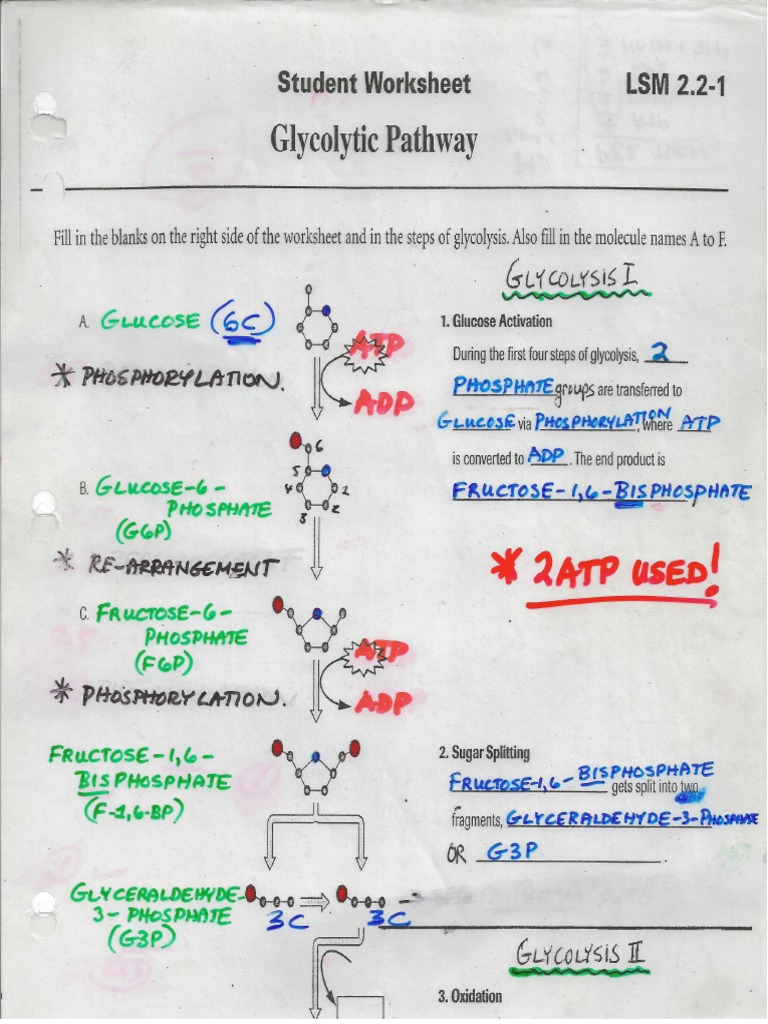 Student Worksheet
LSM 2.2-1
Glycolytic Pathway
Fill in the blanks on the right side of the worksheet and in the steps of glycolysis. Also fill in the molecule names A to F.
A. GLUCOSE (6C)
* PHOSPHORYLATION.
ATP
ADP
6
5
4
1
3
2
B. GLUCOSE-6-
PHOSPHATE
(G6P)
* RE-ARRANGEMENT
C. FRUCTOSE-6-
PHOSPHATE
(F6P)
ATP
* PHOSPHORYLATION.
ADP
FRUCTOSE-1,6-
BISPHOSPHATE
(F-1,6-BP)
GLYCERALDEHYDE-
3-PHOSPHATE
(G3P)
3C
3C
GLYCOLYSIS I
1. Glucose Activation
During the first four steps of glycolysis, 2
PHOSPHATE groups are transferred to
GLUCOSE via PHOSPHORYLATION, where ATP
is converted to ADP. The end product is
FRUCTOSE-1,6-BISPHOSPHATE
* 2ATP USED!
2. Sugar Splitting
FRUCTOSE-1,6-BISPHOSPHATE gets split into two
fragments, GLYCERALDEHYDE-3-PHOSPHATE
OR G3P.
GLYCOLYSIS II
3. Oxidation